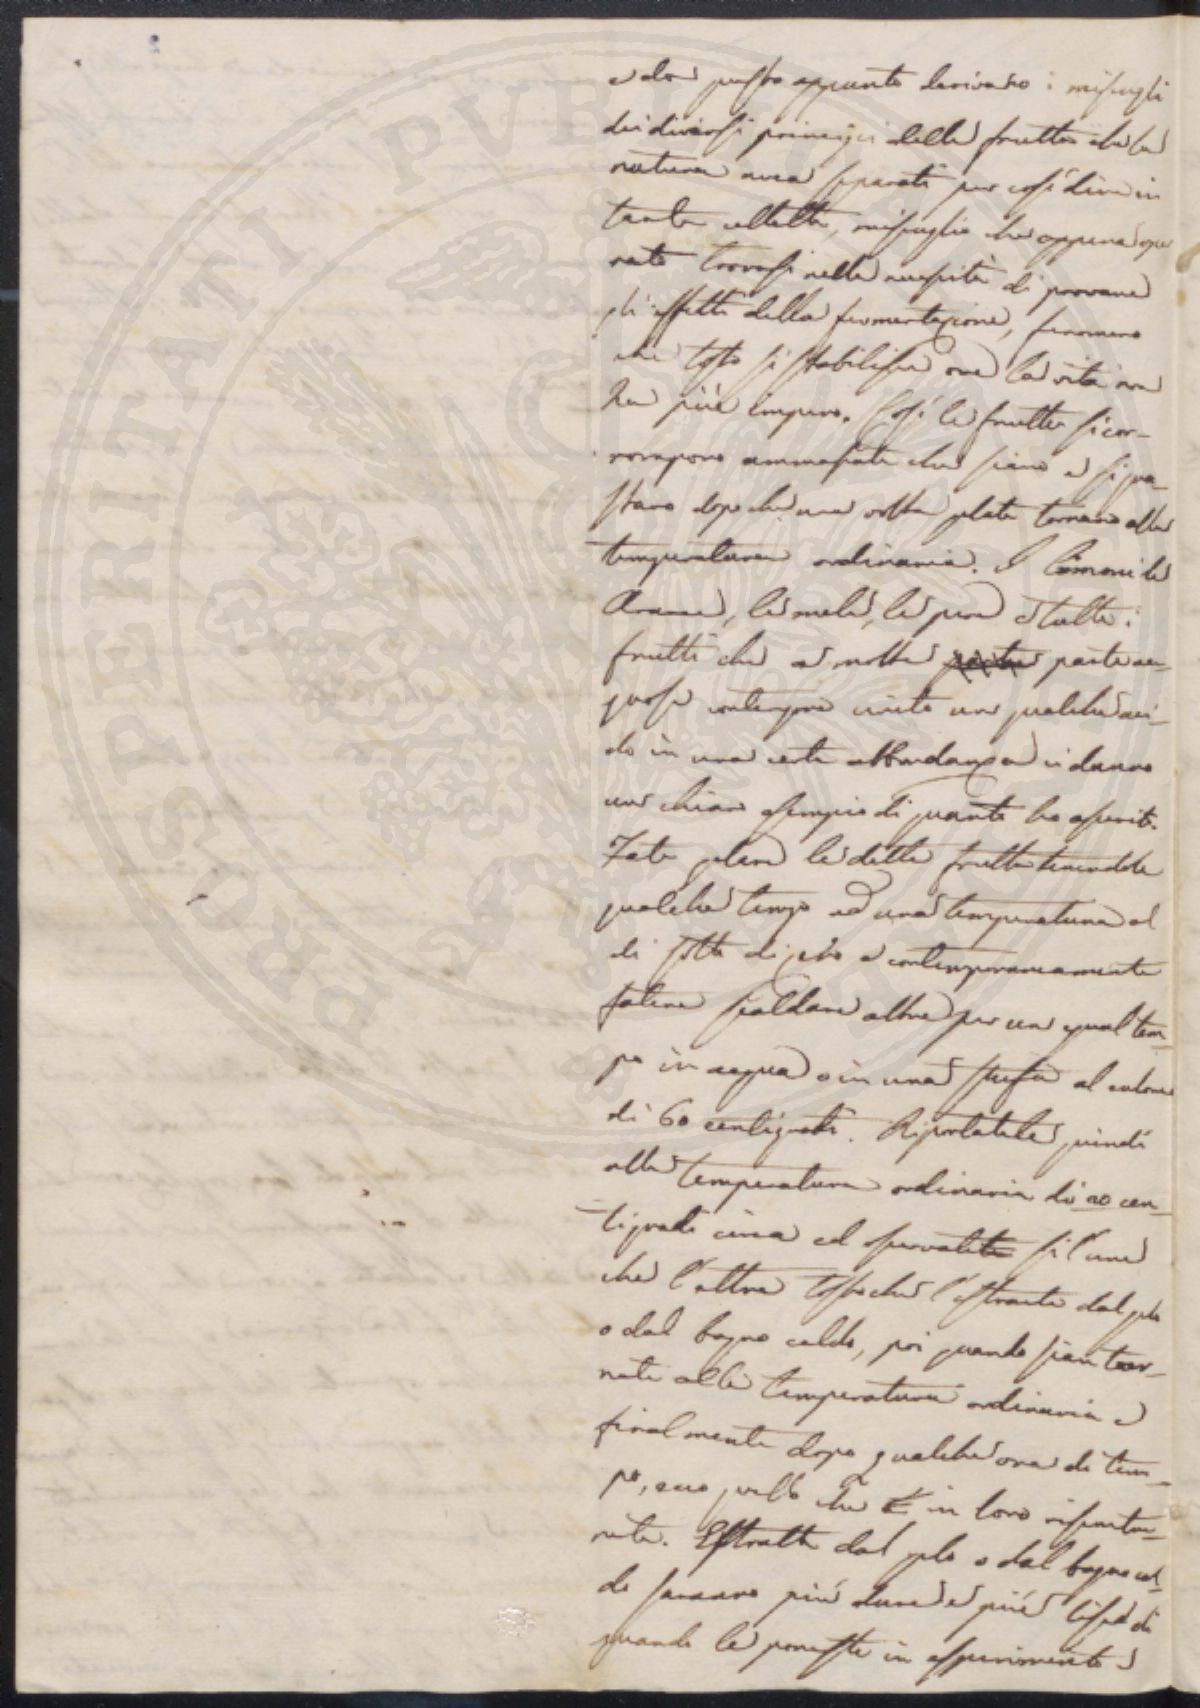 e da questo appunto derivano i miscugli
dei diversi principj delle frutta che la
natura avea separati per così dire in
tante cellette, miscuglio che appena ope
rato trovasi nella necessità di provare
gli effetti della fermentazione, fenomeno
che tosto si stabilisce ove la vita non
ha più impero. Così le frutta si cor-
rompono ammassate che siano e si gua-
stano dopo che una volta gelate tornano alla
temperatura ordinaria. I Limoni le
Arance, le mele, le pere e tutti i
frutti che a molta parte ac-
quosa contengono unito un qualche aci-
do in una certa abbondanza ci danno
un chiaro esempio di quanto ho asserito.
Fate gelare le dette frutta tenendole
qualche tempo ad una temperatura al
di sotto di zero e contemporaneamente
fatene scaldare altre per un egual tem-
po in acqua o in una stufa al calore
di 60 centigradi. Riportatele quindi
alla temperatura ordinaria di 20 cen-
tigradi circa ed osservatele sì l'une
che l'altre tosto che l'estraete dal gelo
o dal bagno caldo, poi quando sian tor-
nate alla temperatura ordinaria e
finalmente dopo qualche ora di tem-
po, ecco quello che in loro riscontre-
rete. Estratte dal gelo o dal bagno cal-
do saranno più dure e più lisce di
quando le poneste in esperimento e
PROSPERITATI PVBLICAE